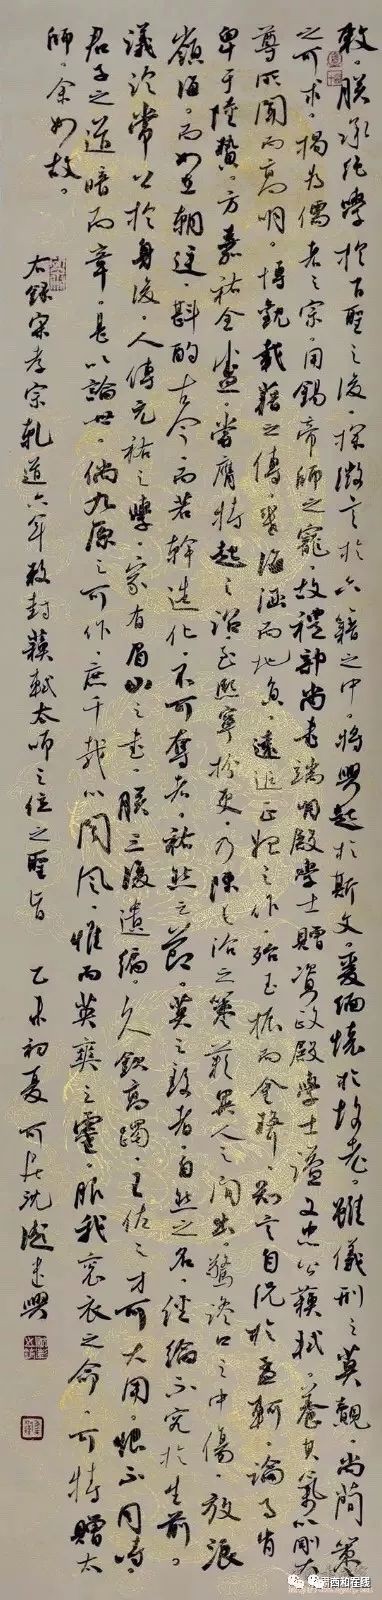 敕。朕承絕學於百聖之後。探微言於六籍之中。將興起於斯文。爰緬懷於故老。雖儀刑之莫覿。尚簡策
之可求。揭為儒者之宗。用錫帝師之寵。故禮部尚書端明殿學士贈資政殿學士謚文忠公蘇軾。養其氣以剛大
尊所聞而高明。博觀載籍之傳。幾海涵而地負。遠追正始之作。殆玉振而金聲。知言自況於孟軻。論事肯
卑于陸贄。方嘉祐全盛。嘗膺特起之詔。至熙寧紛更。乃陳長治之策。嘆異人之間出。驚讒口之中傷。放浪
嶺海。而如在朝廷。斟酌古今。而若幹造化。不可奪者。然之節。莫之致者。自然之名。經綸不究於生前。
議論常公於身後。人傳元祐之學。家有眉山之書。朕三復遺編。久欽高躅。王佐之才可大用。恨不同時。
君子之道暗而章。是以論世。倘九原之可作。庶千載以聞風。惟而英爽之靈。服我袞衣之命。可特贈太
師。余如故。
右錄宋孝宗乾道六年敕封蘇軾太師之位之聖旨 乙未初夏 可居沈
西和在线